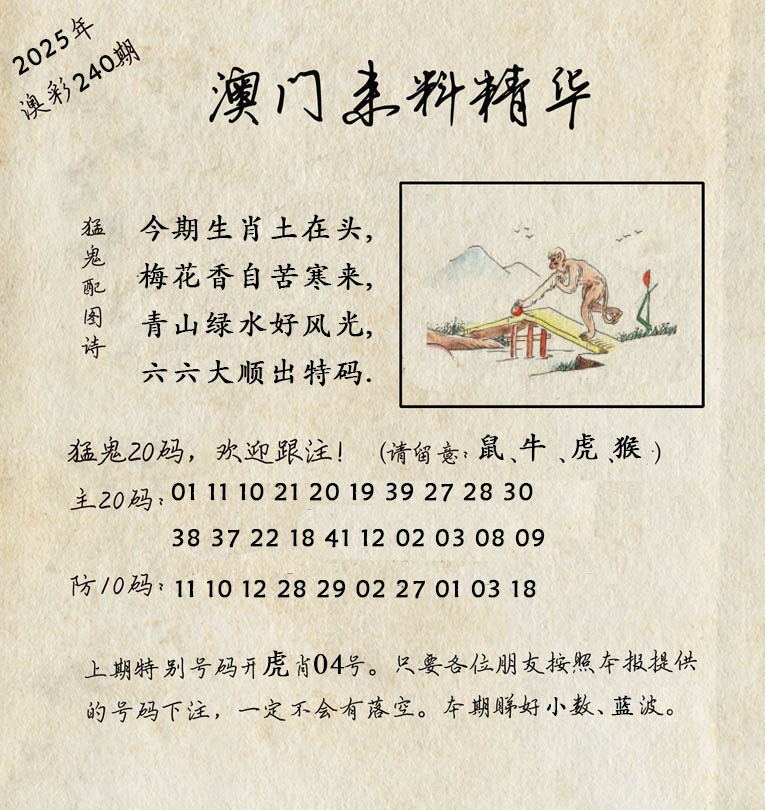 2025年
澳彩240期
澳门来料精华
猛鬼配图诗
今期生肖土在头,
梅花香自苦寒来,
青山绿水好风光,
六六大顺出特码.
猛鬼20码，欢迎跟注！（请留意：鼠、牛、虎、猴.）
主20码：01 11 10 21 20 19 39 27 28 30
38 37 22 18 41 12 02 03 08 09
防10码：11 10 12 28 29 02 27 01 03 18
上期特别号码开虎肖04号。只要各位朋友按照本报提供
的号码下注，一定不会有落空。本期睇好小数、蓝波。